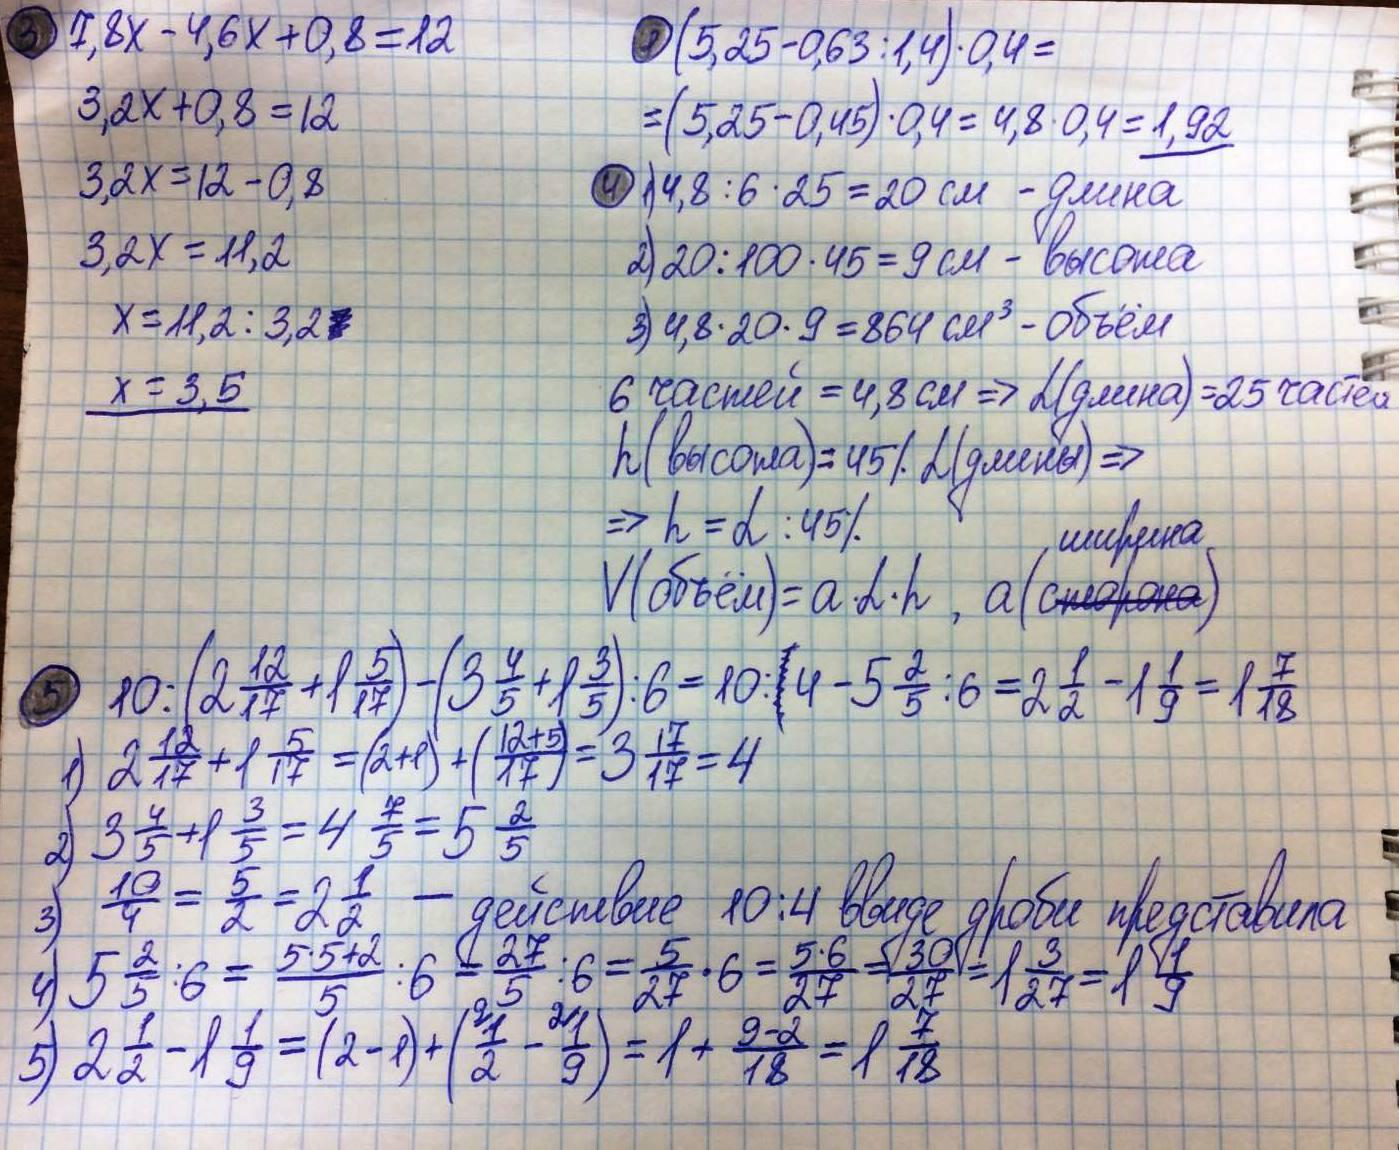 3 7,8x - 4,6x + 0,8 = 12
3,2x + 0,8 = 12
3,2x = 12 - 0,8
3,2x = 11,2
x = 11,2 : 3,2
x = 3,5
(5,25 - 0,63 : 1,4) · 0,4 =
= (5,25 - 0,45) · 0,4 = 4,8 · 0,4 = 1,92
4 1) 4,8 : 6 · 25 = 20 см - длина
2) 20 : 100 · 45 = 9 см - высота
3) 4,8 · 20 · 9 = 864 см³ - объём
6 частей = 4,8 см => L(длина) = 25 частей
h(высота) = 45% L(длины) =>
=> h = L : 45%
ширина
V(объём) = a · L · h , a (сторона)
5 10 : (2 12/17 + 1 5/17) - (3 4/5 + 1 3/5) : 6 = 10 : 4 - 5 2/5 : 6 = 2 1/2 - 1 1/9 = 1 7/18
1) 2 12/17 + 1 5/17 = (2+1) + (12+5/17) = 3 17/17 = 4
2) 3 4/5 + 1 3/5 = 4 7/5 = 5 2/5
3) 10/4 = 5/2 = 2 1/2 — действие 10:4 ввиде дроби представила
4) 5 2/5 : 6 = 5·5+2/5 : 6 = 27/5 : 6 = 5/27 · 6 = 5·6/27 = 30/27 = 1 3/27 = 1 1/9
5) 2 1/2 - 1 1/9 = (2-1) + (9\1/2 - 2\1/9) = 1 + 9-2/18 = 1 7/18